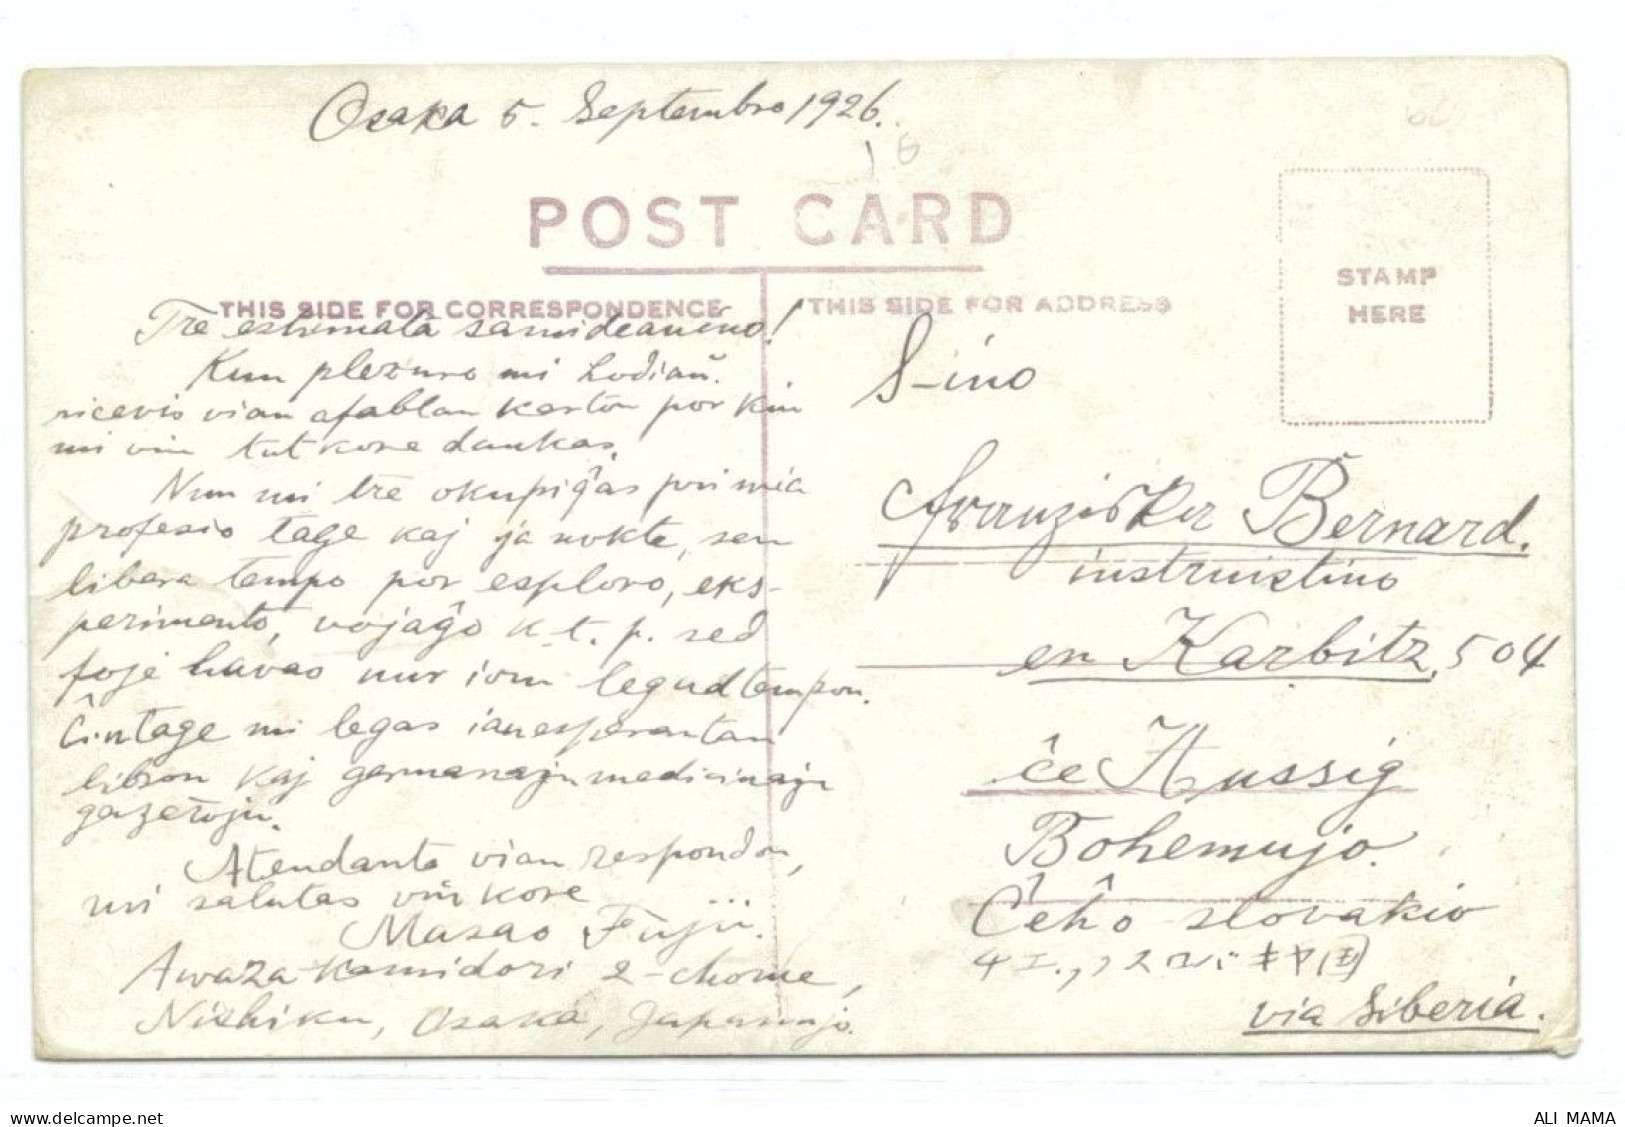 Osaka 5. Septembro 1926.
POST CARD
THIS SIDE FOR CORRESPONDENCE
THIS SIDE FOR ADDRESS
STAMP
HERE
Tre estimata samideanino!
Kun plezuro mi hodiaŭ
ricevis vian afablan karton por kiu
mi vin tutkore dankas.
Nun mi tre okupiĝas pri mia
profesio tage kaj nokte, sen
libera tempo por esploro, eks-
perimento, vojaĝo k. t. p. sed
foje havas nur iom
Ĉiutage mi legas
libron kaj germanajn medicinajn
gazetojn.
Atendante vian respondon,
mi salutas vin kore
Masao Fujii.
Awaza-Kamidori 2-chome,
Nishiku, Osaka, Japanujo.
S-ino
Franziska Bernard.
instruistino
en Karbitz, 504
ĉe Aussig
Bohemujo.
Ĉeĥo-slovakio
via Siberia.
ALI MAMA
delcampe.net